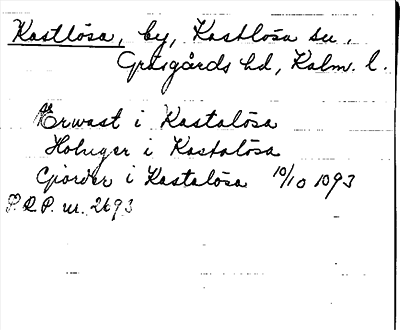 Kastlösa, by, Kastlösa sn,
Gräsgårds hd, Kalm. l.
Ærwast i Kastalösa
Holmger i Kastalösa
Giorder i Kastalösa 10/10 1093
P.R.P. nr. 2693